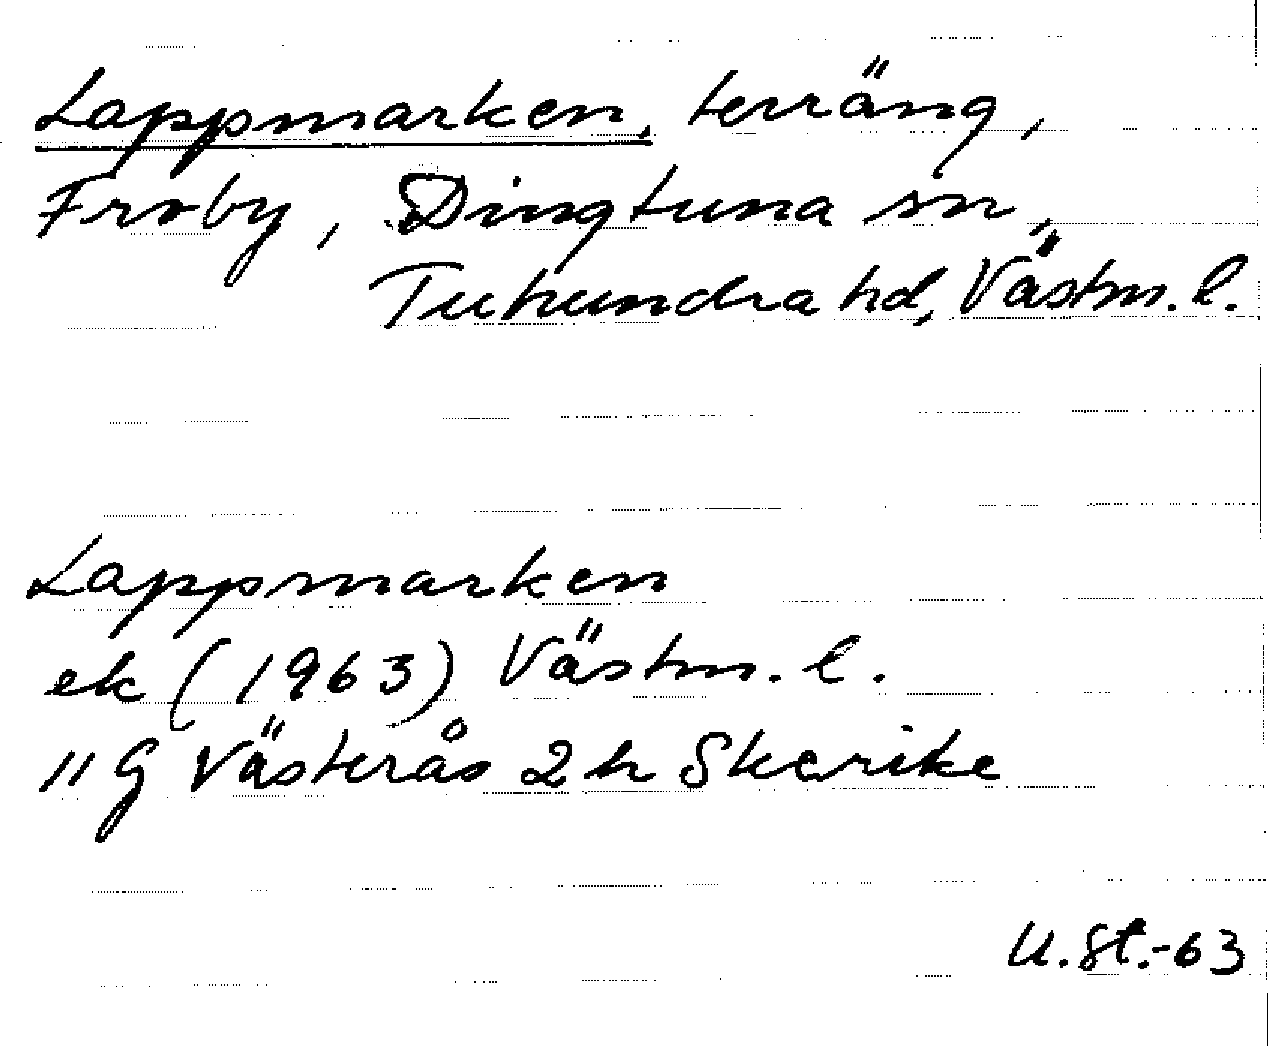 Lappmarken, terräng,
Froby, Dingtuna sn,
Tuhundra hd, Västm. l.
Lappmarken
ek (1963) Västm. l.
11 G Västerås 2 h Skerike
U. St.-63